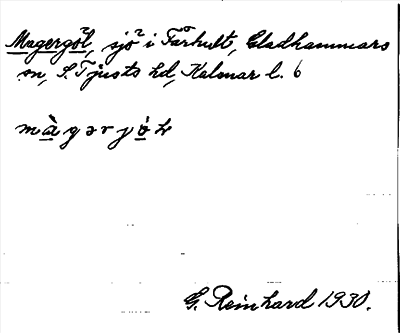 Magergöl, sjö i Fårhult, Gladhammars
sn, S. Tjusts hd, Kalmar l. 6
G. Reinhard 1930.